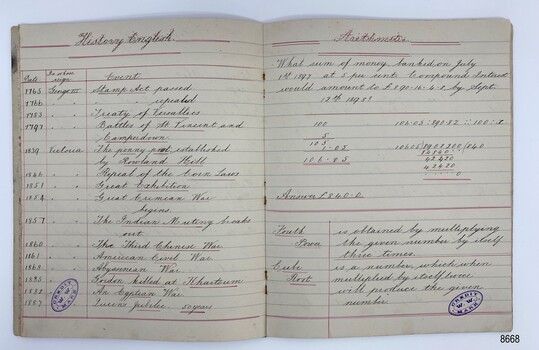 History English
Date In whose reign Event
1765 George III Stamp Act passed
1766 " " " repealed
1783 " " Treaty of Versailles
1797 " " Battles of St Vincent and
Camperdown
1839 Victoria The penny post established
by Rowland Hill
1846 " Repeal of the Corn Laws
1851 " Great Exhibition
1854 " Great Crimean War
begins
1857 " The Indian Mutiny breaks
out
1860 " The Third Chinese War
1861 " American Civil War
1868 " Abyssinian War
1885 Gordon killed at Khartoum
1882 An Egyptian War
1887 Queen's jubilee 50 years
Arithmetic
What sum of money, banked on July
1st 1897 at 5 per cent Compound Interest
would amount to £890-16-4.8 by Sept
12th 1898?
100
5
105
1.05
106.05
Answer £840.0
Fourth Power is obtained by multiplying
the given number by itself
three times.
Cube Root is a number, which when
multiplied by itself twice
will produce the given
number
8668